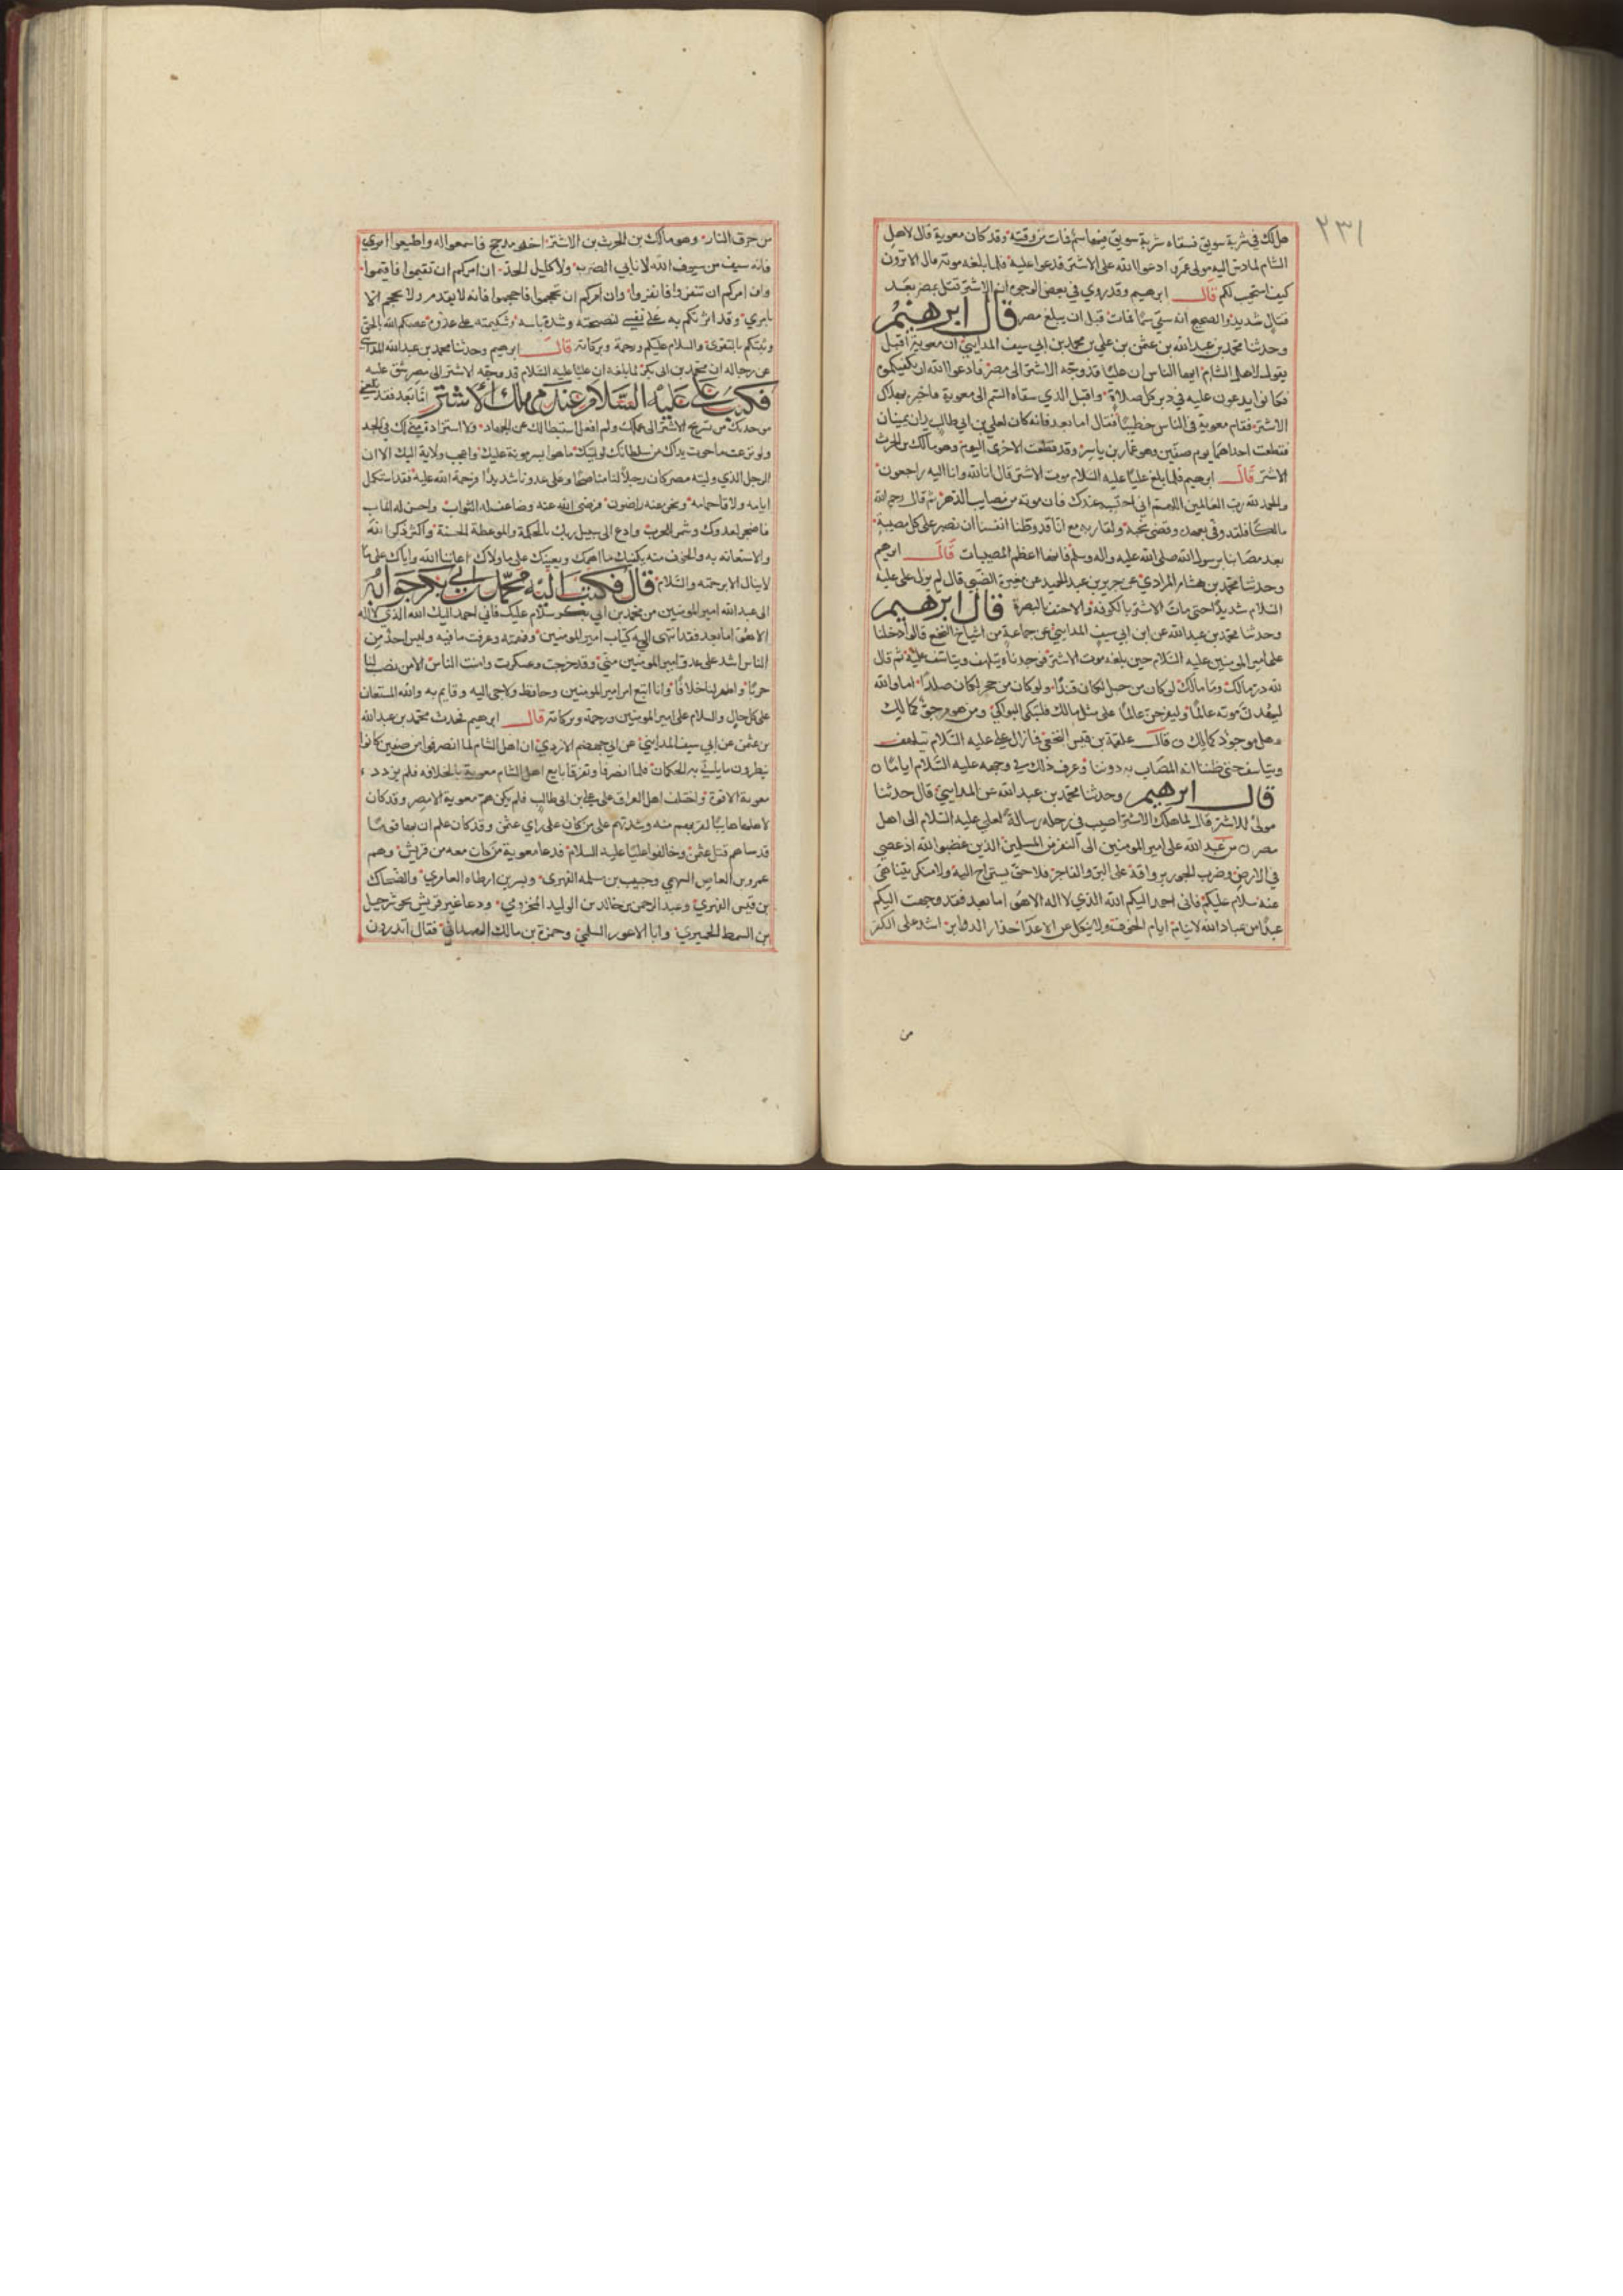 ٢٣١
هل لك في شربة سويق فسقاه شربة سويق فيها سم فمات من وقته وقد كان معوية قال لاهل
الشام لما دس اليه مولى عمر ادعوا الله على الاشتر فدعوا عليه فلما بلغه موته قال الا ترون
كيف استجيب لكم قال ابرهيم وقد روي في بعض الوجوه ان الاشتر قتل بمصر بعد
قتال شديد والصحيح انه سقي سما فمات قبل ان يبلغ مصر قال ابرهيم
وحدثنا محمد بن عبدالله بن عثمن بن علي بن محمد بن ابي سيف المدايني ان معوية اقبل
يقول لاهل الشام ايها الناس ان عليا قد وجه الاشتر الى مصر فادعوا الله ان يكفيكموه
فكانوا يدعون عليه في دبر كل صلاة واقبل الذي سقاه السم الى معوية فاخبره بهلاك
الاشتر فقام معوية في الناس خطيبا فقال اما بعد فانه كان لعلي بن ابي طالب يدان يمينان
فقطعت احداهما يوم صفين وهو عمار بن ياسر وقد قطعت الاخرى اليوم وهو مالك بن الحرث
الاشتر قال ابرهيم فلما بلغ عليا عليه السلام موت الاشتر قال انا لله وانا اليه راجعون
والحمد لله رب العالمين اللهم اني احتسبه عندك فان موته من مصايب الدهر ثم قال رحم الله
مالكا فلقد وفى بعهده وقضى نحبه ولقا ربه مع انا قد وطنا انفسنا ان نصبر على كل مصيبة
بعد مصابنا برسول الله صلى الله عليه واله وسلم فانها اعظم المصيبات قال ابرهيم
وحدثنا محمد بن هشام المرادي عن جرير بن عبد الحميد عن مغيرة الضبي قال لم يزل على عليه
السلام شديدا حتى مات الاشتر بالكوفة والاحنف بالبصرة قال ابرهيم
وحدثنا محمد بن عبدالله عن ابن ابي سيف المدايني عن جماعة من اشياخ النخع قالوا دخلنا
على امير المومنين عليه السلام حين بلغه موت الاشتر فوجدناه يتلهف ويتاسف عليه ثم قال
لله در مالك وما مالك لو كان من جبل لكان فندا ولو كان من حجر لكان صلدا اما والله
ليهدن موته عالما وليفرحن عالما على مثل مالك فلتبكي البواكي ومن هو مرجو كمالك
وهل موجود كمالك قال علقمة بن قيس النخعي فما زال علي عليه السلام يتلهف
ويتاسف حتى ظننا انه المصاب به دوننا وعرف ذلك في وجهه عليه السلام اياما
قال ابرهيم وحدثنا محمد بن عبد الله عن المدايني قال حدثنا
مولى للاشتر قال لما هلك الاشتر اصيب في رحله رسالة لعلي عليه السلام الى اهل
مصر من عبد الله علي امير المومنين الى النفر من المسلمين الذين غضبوا لله اذ عصي
في الارض وضرب الجور برواقه على البر والفاجر فلا حق يستراح اليه ولا منكر يتناهى
عنه سلام عليكم فاني احمد اليكم الله الذي لا اله الا هو اما بعد فقد وجهت اليكم
عبدا من عباد الله لا ينام ايام الخوف ولا ينكل عن الاعدا حذار الدواير اشد على الكفر
من
من حرق النار وهو مالك بن الحرث بن الاشتر اخو مذحج فاسمعوا له واطيعوا امري
فانه سيف من سيوف الله لا نابي الضربه ولا كليل الحد ان امركم ان تقيموا فاقيموا
وان امركم ان تنفروا فانفروا وان امركم ان تحجموا فاحجموا فانه لا يقدم ولا يحجم الا
بامري وقد اثرتكم به على نفسي لنصيحته وشدة باسه وشكيمته على عدوه عصمكم الله بالحق
وثبتكم بالتقوى والسلام عليكم ورحمة وبركاته قال ابرهيم وحدثنا محمد بن عبدالله المدايني
عن رجاله ان محمد بن ابي بكر لما بلغه ان عليا عليه السلام قد وجه الاشتر الى مصر شق عليه
فكتب علي عليه السلام عند مهلك الاشتر اما بعد فقد بلغني
موجدتك من تسريح الاشتر الى عملك ولم افعل استبطا لك عن الجهاد ولا استزادة مني لك في الجد
ولو نزعت ما حوت يداك من سلطانك لوليتك ما هو ايسر مونة عليك واعجب ولاية اليك الا ان
الرجل الذي وليته مصر كان رجلا لنا مناصحا وعلى عدونا شديدا فرحمة الله عليه فقد استكمل
ايامه ولاقا حمامه ونحن عنه راضون فرضي الله عنه وضاعف له الثواب واحسن له الماب
فاصحر لعدوك وشمر للحرب وادع الى سبيل ربك بالحكمة والموعظة الحسنة واكثر ذكر الله
والاستعانة به والخوف منه يكفيك ما اهمك ويعينك على ما ولاك اعاننا الله واياك على ما
لا ينال الا برحمته والسلام قال فكتب اليه محمد بن ابي بكر جوابه
الى عبدالله امير المومنين من محمد بن ابي بكر سلام عليك فاني احمد اليك الله الذي لا اله
الا هو اما بعد فقد انتهى الي كتاب امير المومنين وفهمته وعرفت ما فيه وليس احد من
الناس اشد على عدو امير المومنين مني وقد خرجت وعسكرت وامنت الناس الا من نصب لنا
حربا واظهر لنا خلافا وانا اتبع امر امير المومنين وحافظ ولاجي اليه وقايم به والله المستعان
على كل حال والسلام على امير المومنين ورحمة وبركاته قال ابرهيم فحدث محمد بن عبدالله
بن عثمن عن ابي سيف المدايني عن ابي جهضم الازدي ان اهل الشام لما انصرفوا من صفين كانوا
ينظرون ما ياتي به الحكمان فلما انصرفا وتفرقا بايع اهل الشام معوية بالخلافه فلم يزدد
معوية الا قوة واختلف اهل العراق على علي بن ابي طالب فلم يكن هم معوية الا مصر وقد كان
لاهلها هايبا لقربهم منه وشدتهم على من كان على راي عثمن وقد كان علم ان بها قوما
قد ساهم قتل عثمن وخالفوا عليا عليه السلام فدعا معوية من كان معه من قريش وهم
عمرو بن العاص السهمي وحبيب بن سلمه الفهري وبسر بن ارطاه العامري والضحاك
بن قيس الفهري وعبد الرحمن بن خالد بن الوليد المخزومي ودعا غير قريش نحو شرحبيل
بن السمط الحميري وابا الاعور السلمي وحمزة بن مالك الهمداني فقال اتدرون